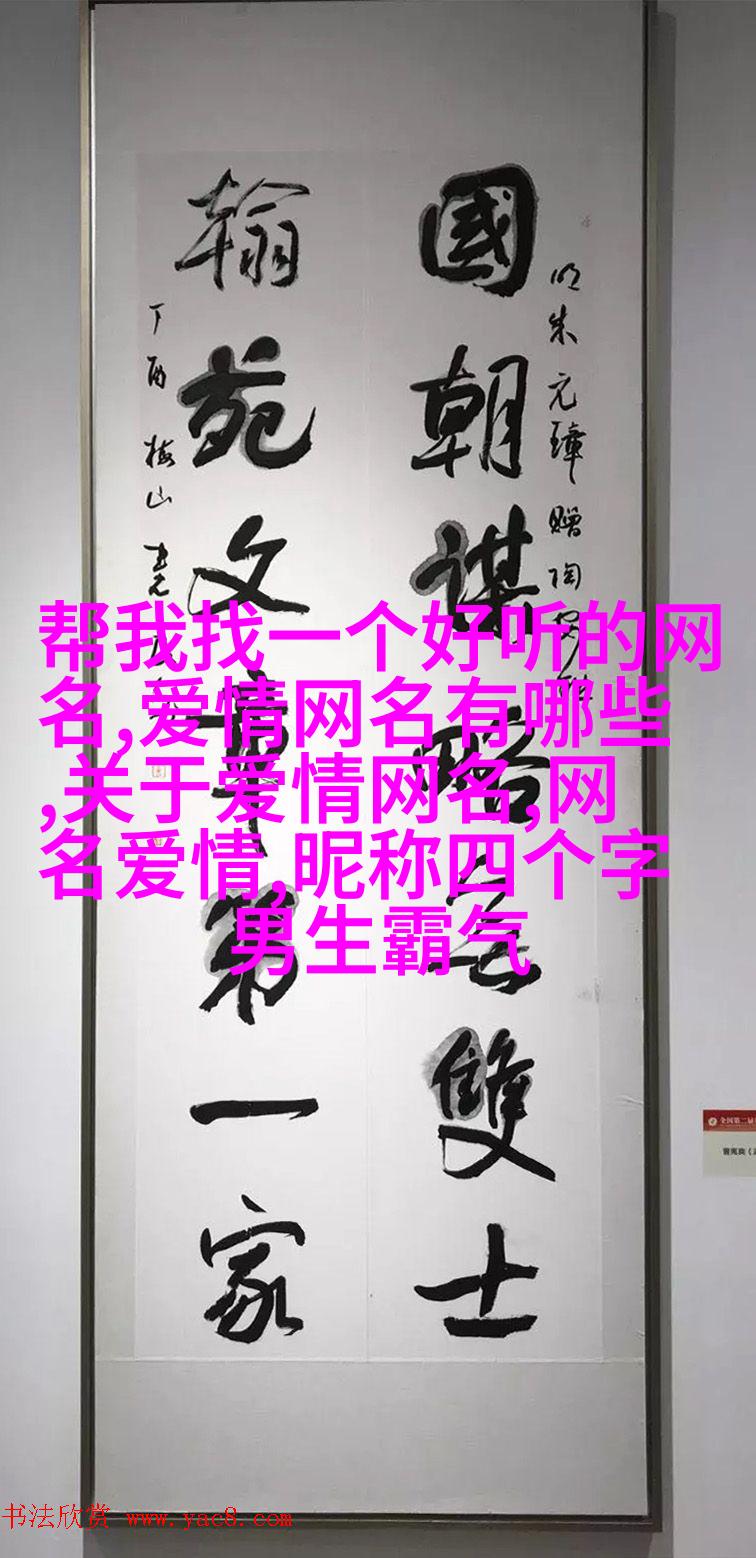 國朝謀略無雙士
翰苑文章第一家
明朱元璋贈陶安聯
丁酉 梅山
帮我找一个好听的网
名,爱情网名有哪些
,关于爱情网名,网
名爱情,昵称四个字
男生霸气
全国第二届
曾宪良
书法欣赏 www.yac8.com